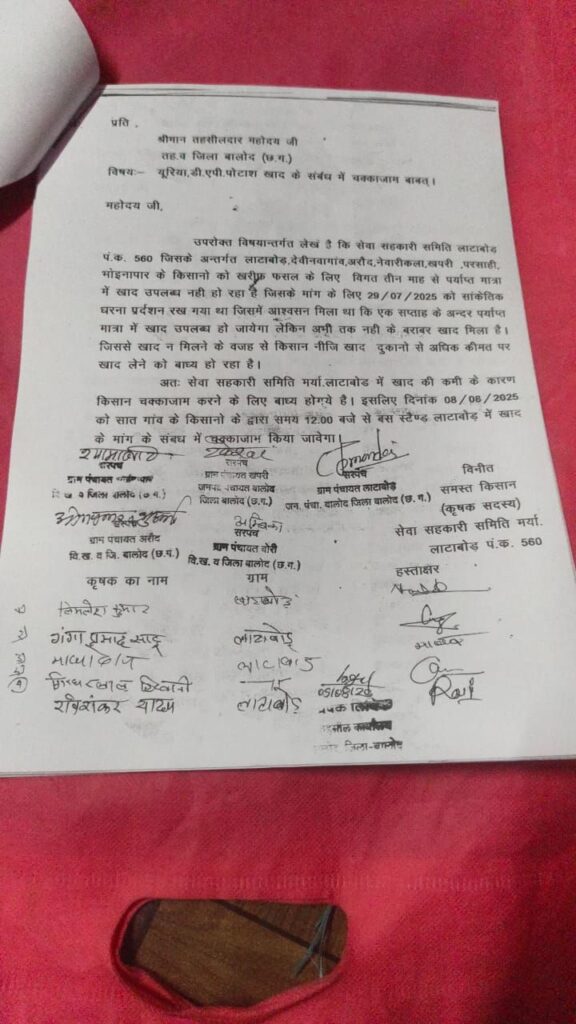 प्रति ,
श्रीमान तहसीलदार महोदय जी
तह.व जिला बालोद (छ.ग.)
विषयः– यूरिया,डी.एपी.पोटाश खाद के संबंध में चक्काजाम बाबत्।
महोदय जी,
उपरोक्त विषयान्तर्गत लेख है कि सेवा सहकारी समिति लाटाबोड़
पं.क. 560 जिसके अन्तर्गत लाटाबोड़,देवीनवागांव,अरौद,नेवारीकला,खपरी ,परसाही,
भोइनापार के किसानो को खरीफ फसल के लिए विगत तीन माह से पर्याप्त मात्रा
में खाद उपलब्ध नही हो रहा है जिसके मांग के लिए 29/07/2025 को सांकेतिक
धरना प्रर्दशन रख गया था जिसमें आश्वसन मिला था कि एक सप्ताह के अन्दर पर्याप्त
मात्रा में खाद उपलब्ध हो जायेगा लेकिन अभी तक नही के बराबर खाद मिला है।
जिससे खाद न मिलने के वजह से किसान नीजि खाद दुकानो से अधिक कीमत पर
खाद लेने को बाध्य हो रहा है।
अतः सेवा सहकारी समिति मर्या.लाटाबोड में खाद की कमी के कारण
किसान चक्काजाम करने के लिए बाध्य होगये है। इसलिए दिनांक 08/08/2025
को सात गांव के किसानो के द्वारा समय 12.00 बजे से बस स्टैण्ड लाटाबोड़ में खाद
के मांग के संबध में चक्काजाम किया जावेगा।
सरपंच सरपंच सरपंच
ग्राम पंचायत ग्राम पंचायत खपरी ग्राम पंचायत लाटाबोड़
वि.ख. व जिला बालोद (छ.ग.) जनपद पंचायत बालोद जन. पंचा. बालोद जिला बालोद (छ.ग.)
जिला बालोद (छ.ग.)
विनीत
समस्त किसान
(कृषक सदस्य)
सेवा सहकारी समिति मर्या.
लाटाबोड़ पं.क. 560
सरपंच
ग्राम पंचायत अरौद ग्राम पंचायत बोरी
वि.ख. व जि. बालोद (छ.ग.) वि.ख. व जिला बालोद (छ.ग.)
कृषक का नाम ग्राम हस्ताक्षर
कुमार
गंगा प्रसाद साहू लाटाबोड़
रविशंकर यादव लाटाबोड़ Ravi
जिला-बालोद